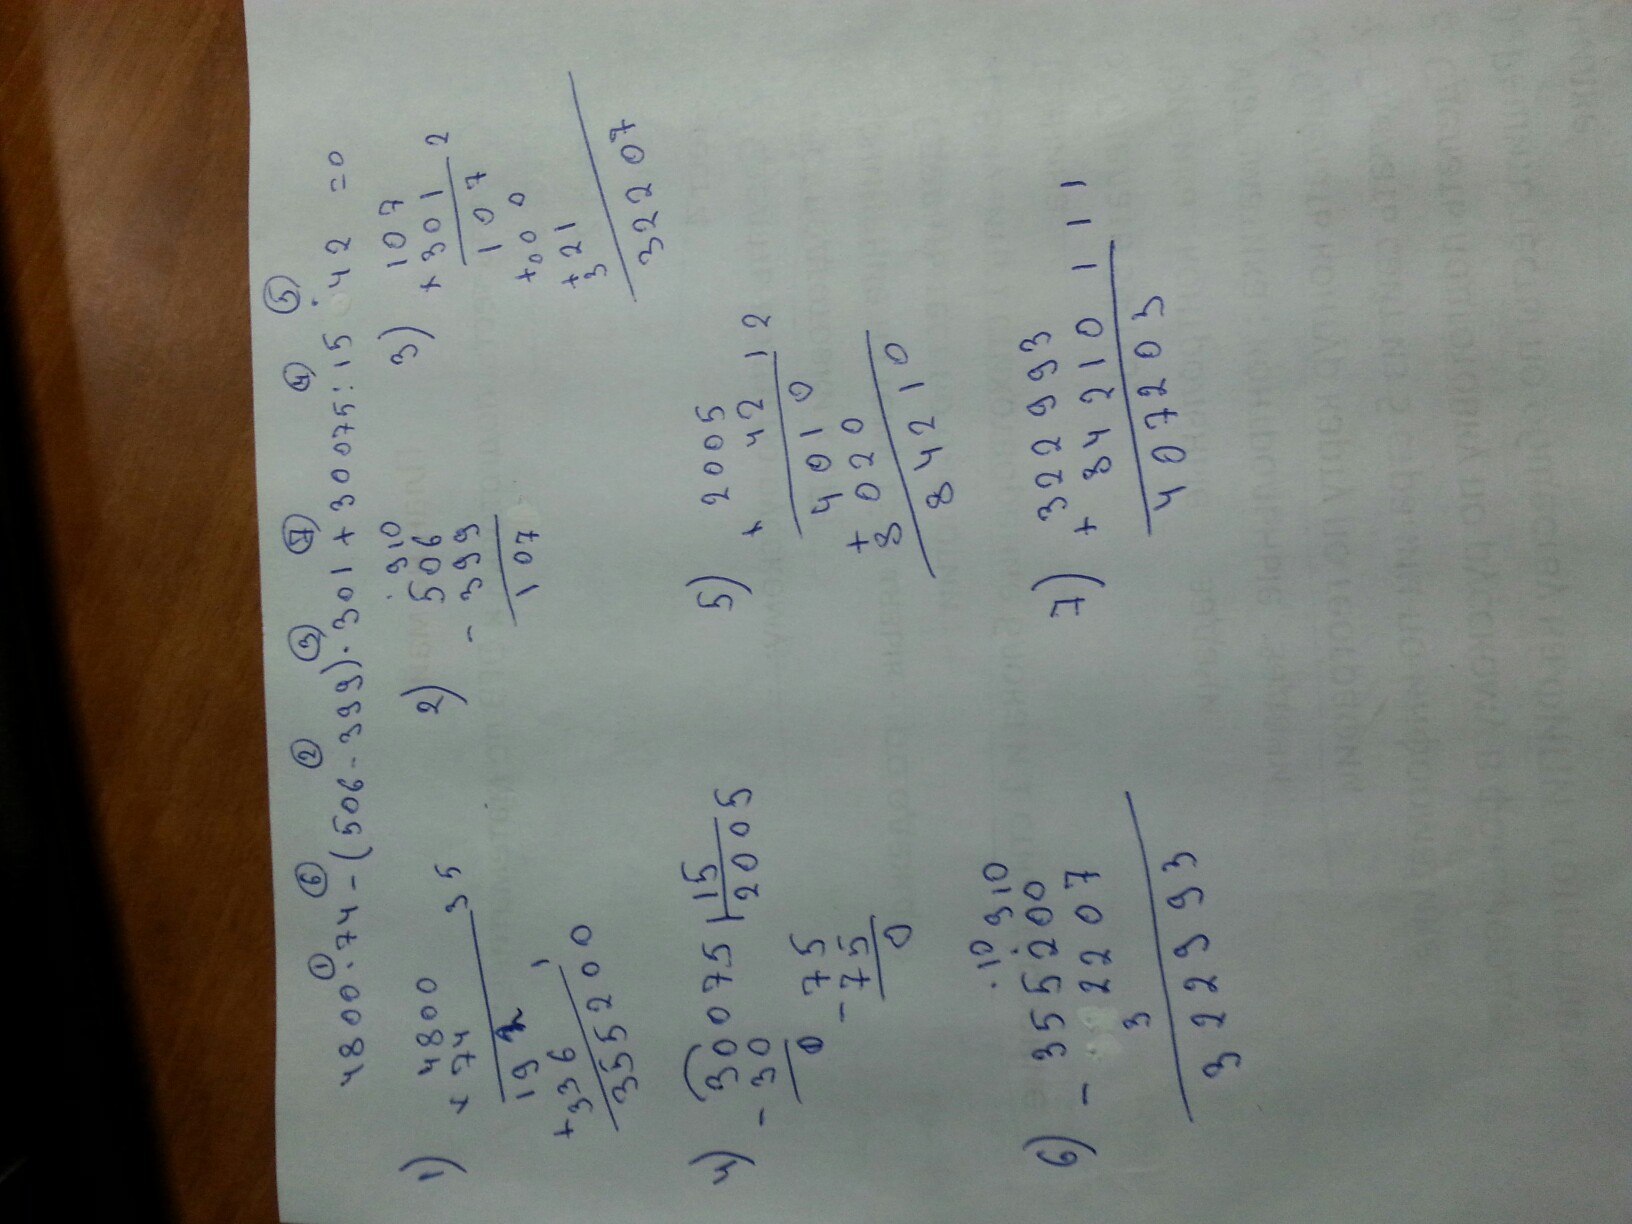 ① ⑥ ② ③ ④ ④ ⑤
4800·74-(506-399)·301+30075:15·42 =0
1) 4800
× 74 35
192
+336 1
355200
2) 910
506
- 399
107
3) 107
× 301 2
107
+000
+321
32207
4) 30075 15
- 30 2005
0
75
- 75
0
5) 2005
× 42 12
4010
+8020
84210
6) 10 910
- 355200
32207
322993
7) 322993
+ 84210 111
407203